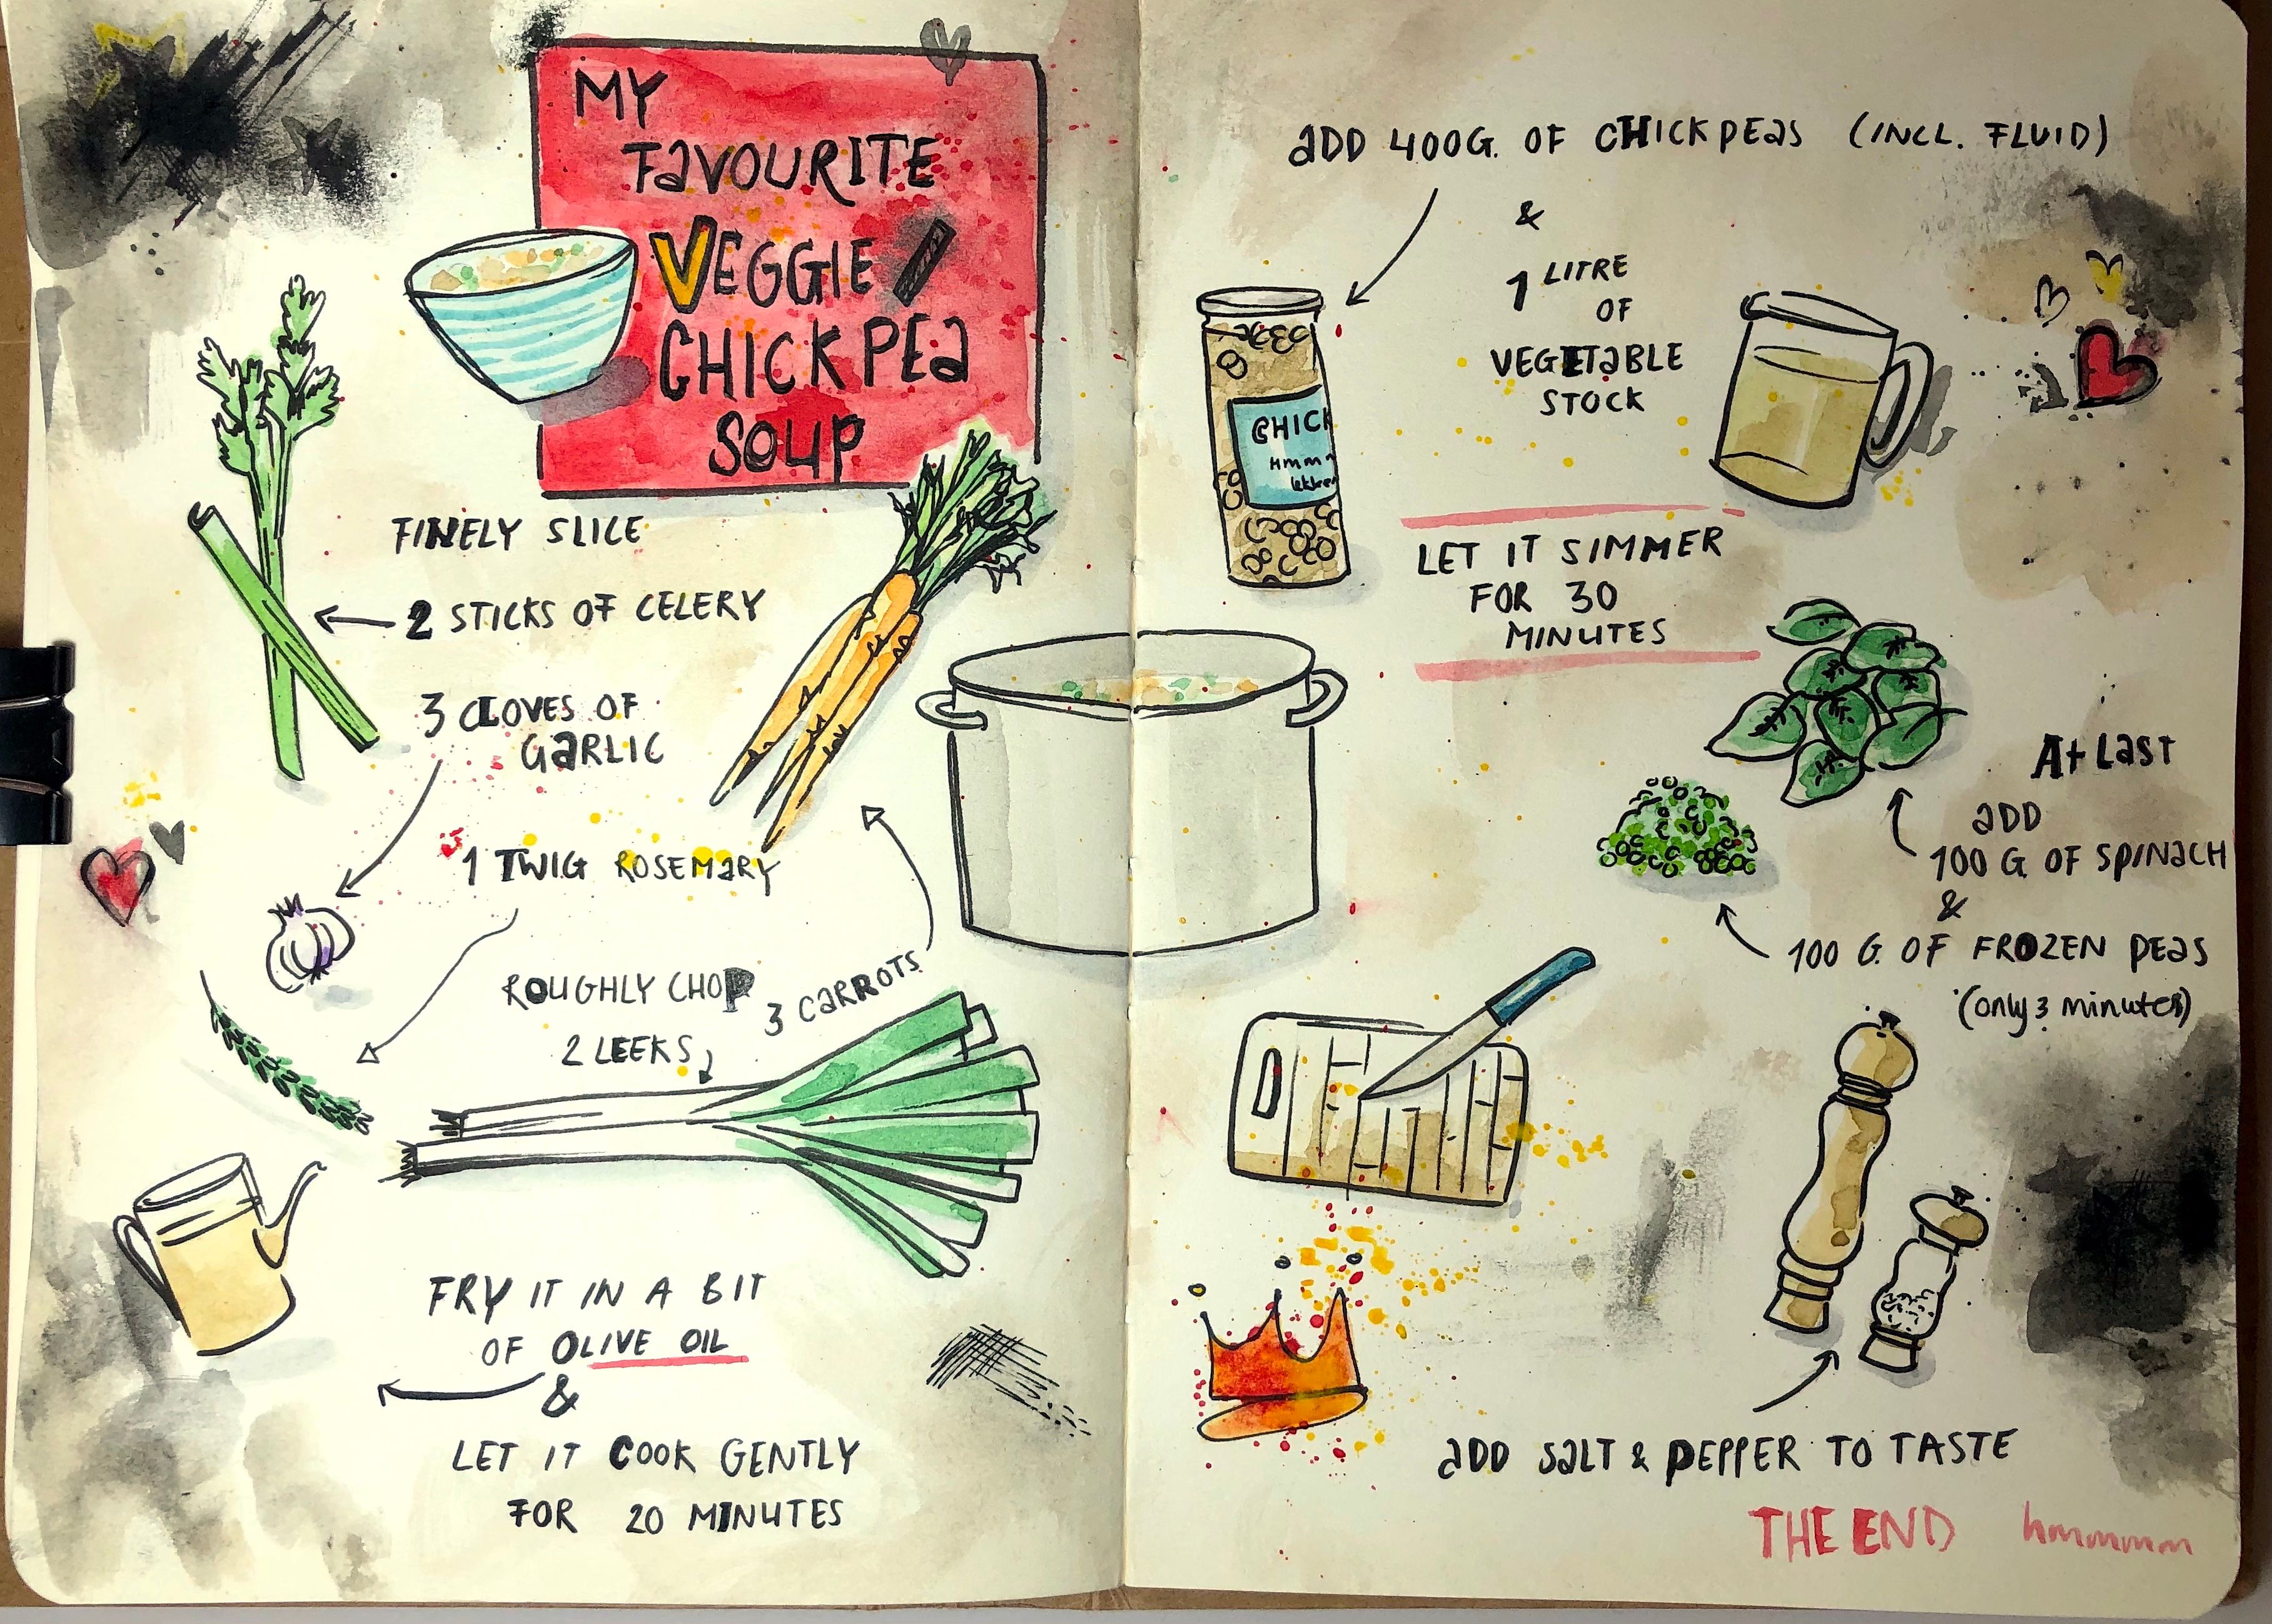 MY
FAVOURITE
VEGGIE
CHICKPEA
SOUP
FINELY SLICE
2 STICKS OF CELERY
3 CLOVES OF
GARLIC
1 TWIG ROSEMARY
ROUGHLY CHOP
2 LEEKS
3 CARROTS
FRY IT IN A BIT
OF OLIVE OIL
&
LET IT COOK GENTLY
FOR 20 MINUTES
ADD 400G. OF CHICKPEAS (INCL. FLUID)
&
1 LITRE
OF
VEGETABLE
STOCK
CHICK
HMMM
lekker
LET IT SIMMER
FOR 30
MINUTES
At LAST
ADD
100 G. OF SPINACH
&
100 G. OF FROZEN PEAS
(only 3 minutes)
ADD SALT & PEPPER TO TASTE
THE END hmmmmm